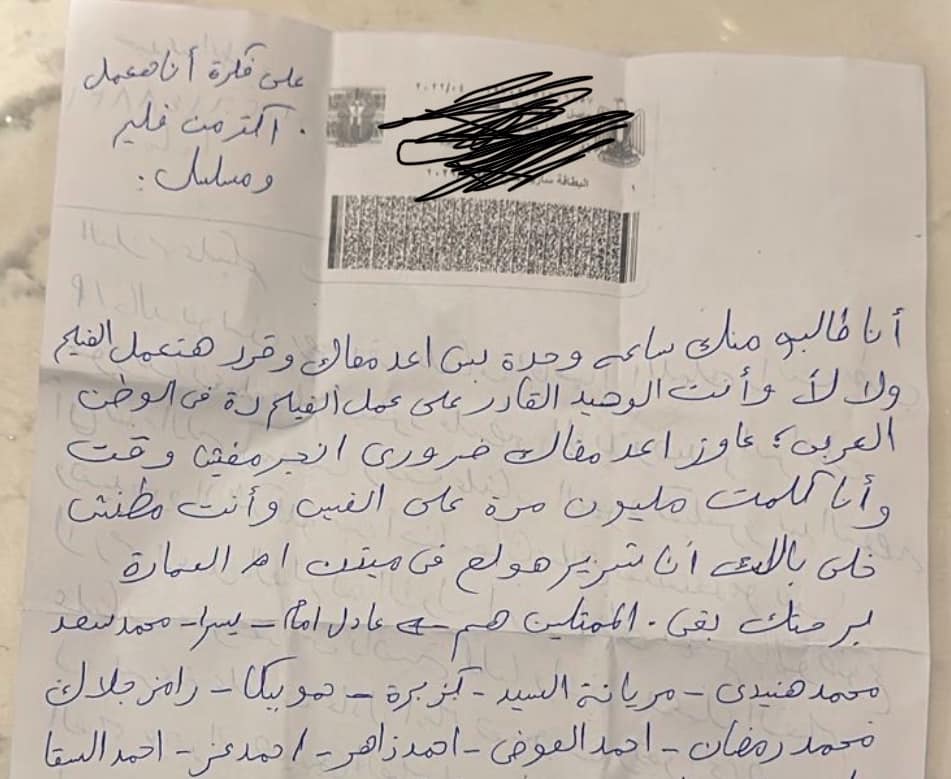 على فكرة أنا هعمل
اكتر من فليم
ومسلسل :
٢٠٢٢/٠٤
البطاقة سارية
أنا طالبو منك ساعه وحدة بس اعد معاك وقرر هتعمل الفيلم
ولا لأ وأنت الوحيد القادر على عمل الفيلم دة فى الوطن
العربى ؛ عاوز اعد معاك ضرورى انجر مفيش وقت
وأنا كلمت مليون مرة على الفيس وأنت مطنش
خلى بالك أنا شرير هولع فى ام العمارة
بقى . الممثلين هم عادل امام - يسرا - محمد سعد
محمد هنيدى - مريانة السيد - كزبرة - حمو بيكا - رامز جلال
محمد رمضان - احمد العوضى - احمد زاهر - احمد عز - احمد السقا